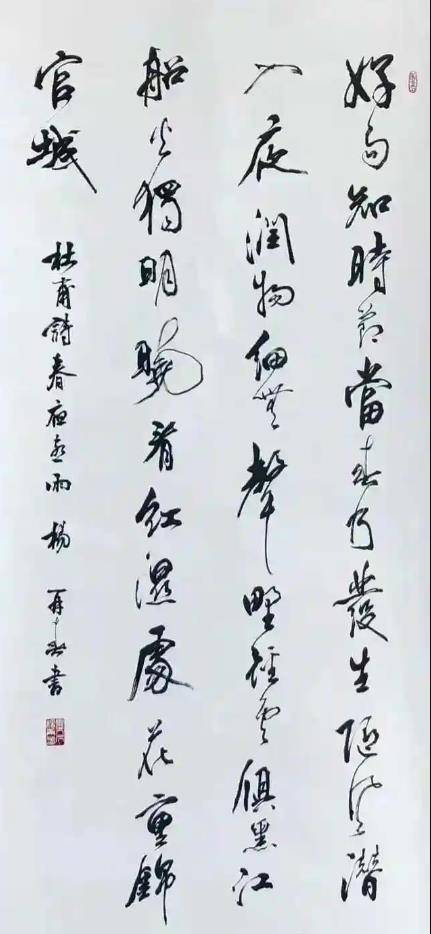 好雨知時節當春乃發生随風潛
入夜潤物細無聲野徑雲俱黑江
船火獨明曉看紅濕處花重錦
官城
杜甫詩春夜喜雨 楊再春書